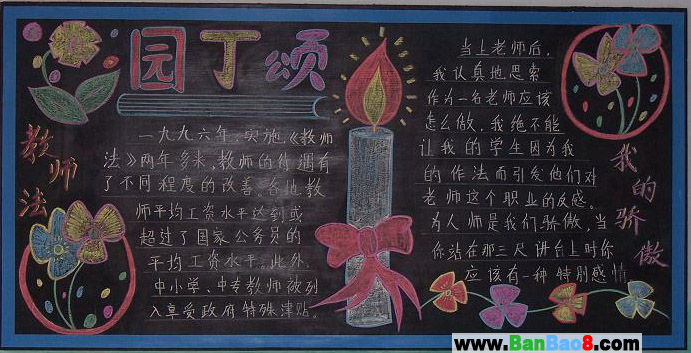 园丁颂
教师法
一九九六年,实施《教师
法》两年多来,教师的待遇有
了不同程度的改善。各地教
师平均工资水平达到或
超过了国家公务员的
平均工资水平。此外,
中小学、中专教师被列
入享受政府特殊津贴。
当上老师后,
我认真地思索
作为一名老师应该
怎么做,我绝不能
让我的学生因为我
的作法而引发他们对
老师这个职业的反感。
为人师是我们骄傲,当
你站在那三尺讲台上时你
应该有一种特别感情
我的骄傲
www.BanBao8.com